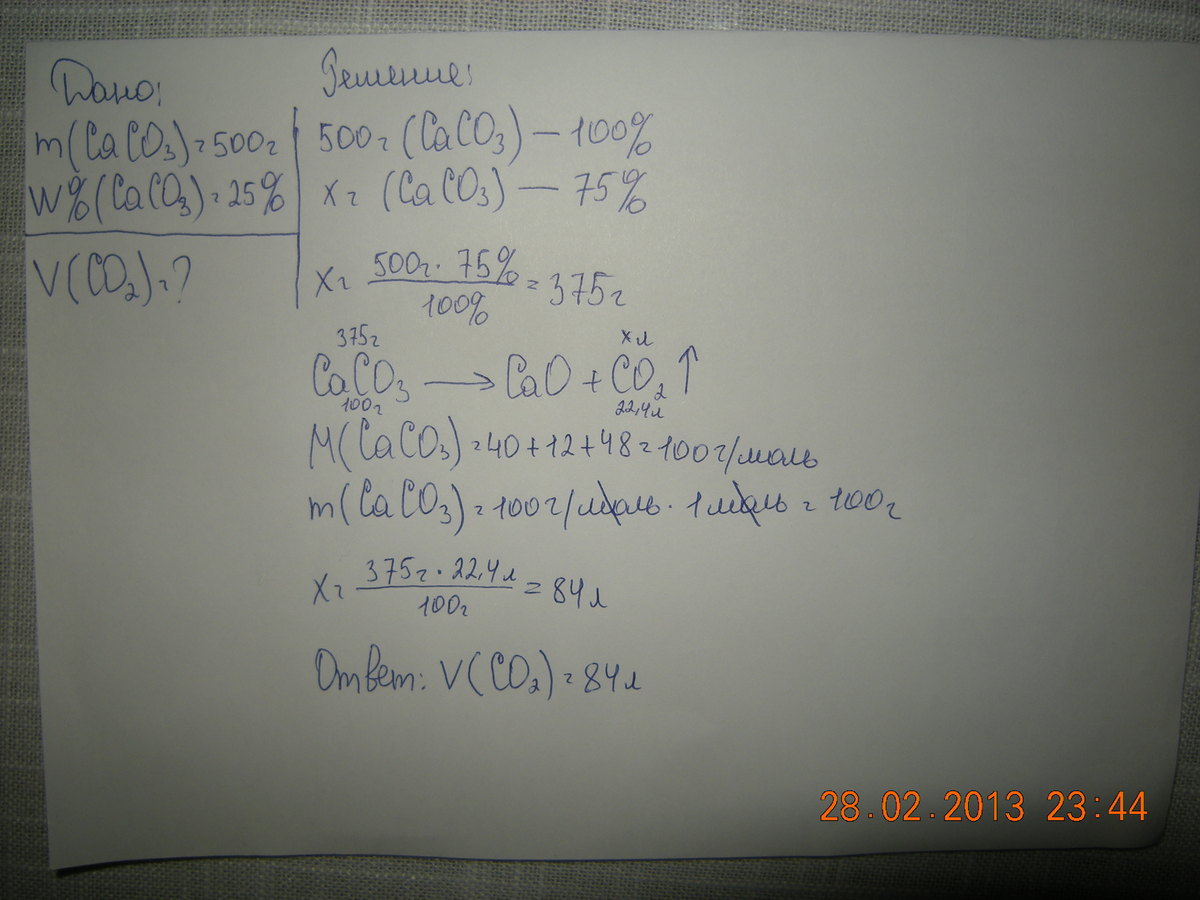 Дано:
m(CaCO₃)=500г
W%(CaCO₃)=25%
V(CO₂)=?
Решение:
500г (CaCO₃) — 100%
xг (CaCO₃) — 75%
x= 500г · 75% / 100% = 375г
375г xл
CaCO₃ → CaO + CO₂ ↑
100г 22,4л
M(CaCO₃)=40+12+48=100г/моль
m(CaCO₃)=100г/моль · 1моль = 100г
x= 375г · 22,4л / 100г = 84л
Ответ: V(CO₂)=84л
28.02.2013 23:44